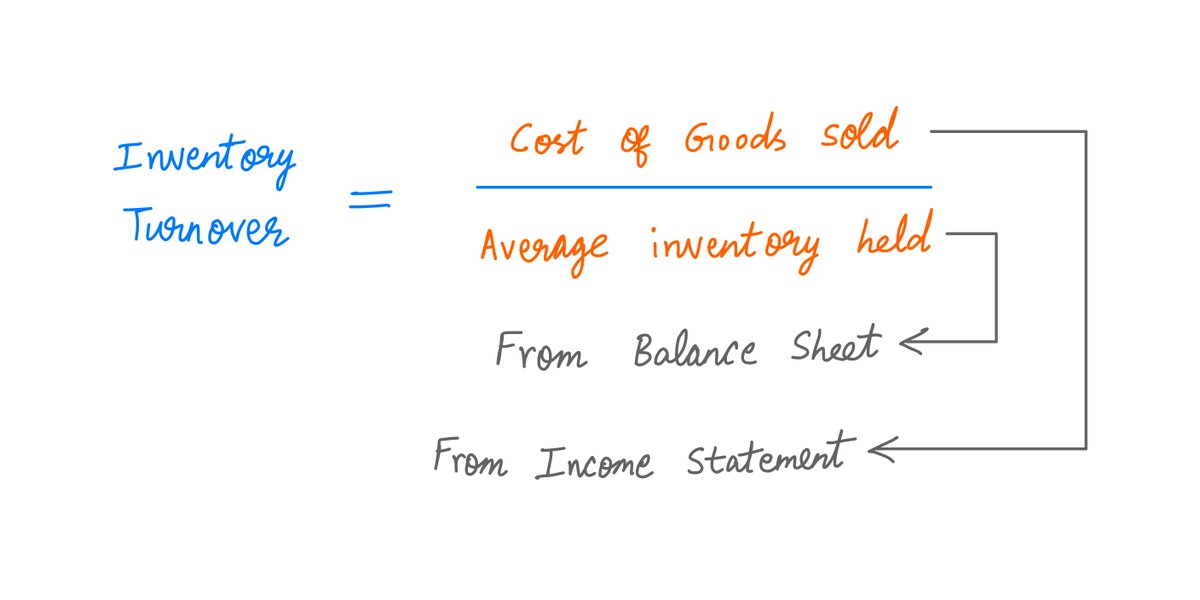 Inventory
Turnover
=
Cost of Goods sold
Average inventory held
From Balance Sheet
From Income Statement